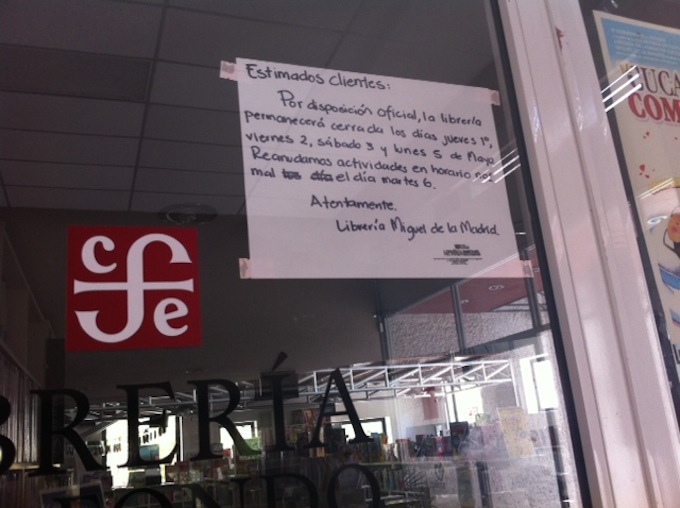 Estimados clientes:
Por disposición oficial, la librería
permanecerá cerrada los días jueves 1º,
viernes 2, sábado 3 y lunes 5 de Mayo
Reanudamos actividades en horario nor
mal el día martes 6.
Atentamente.
Librería Miguel de la Madrid.
cfe
BRERÍA
FONDO
YUCA
COM